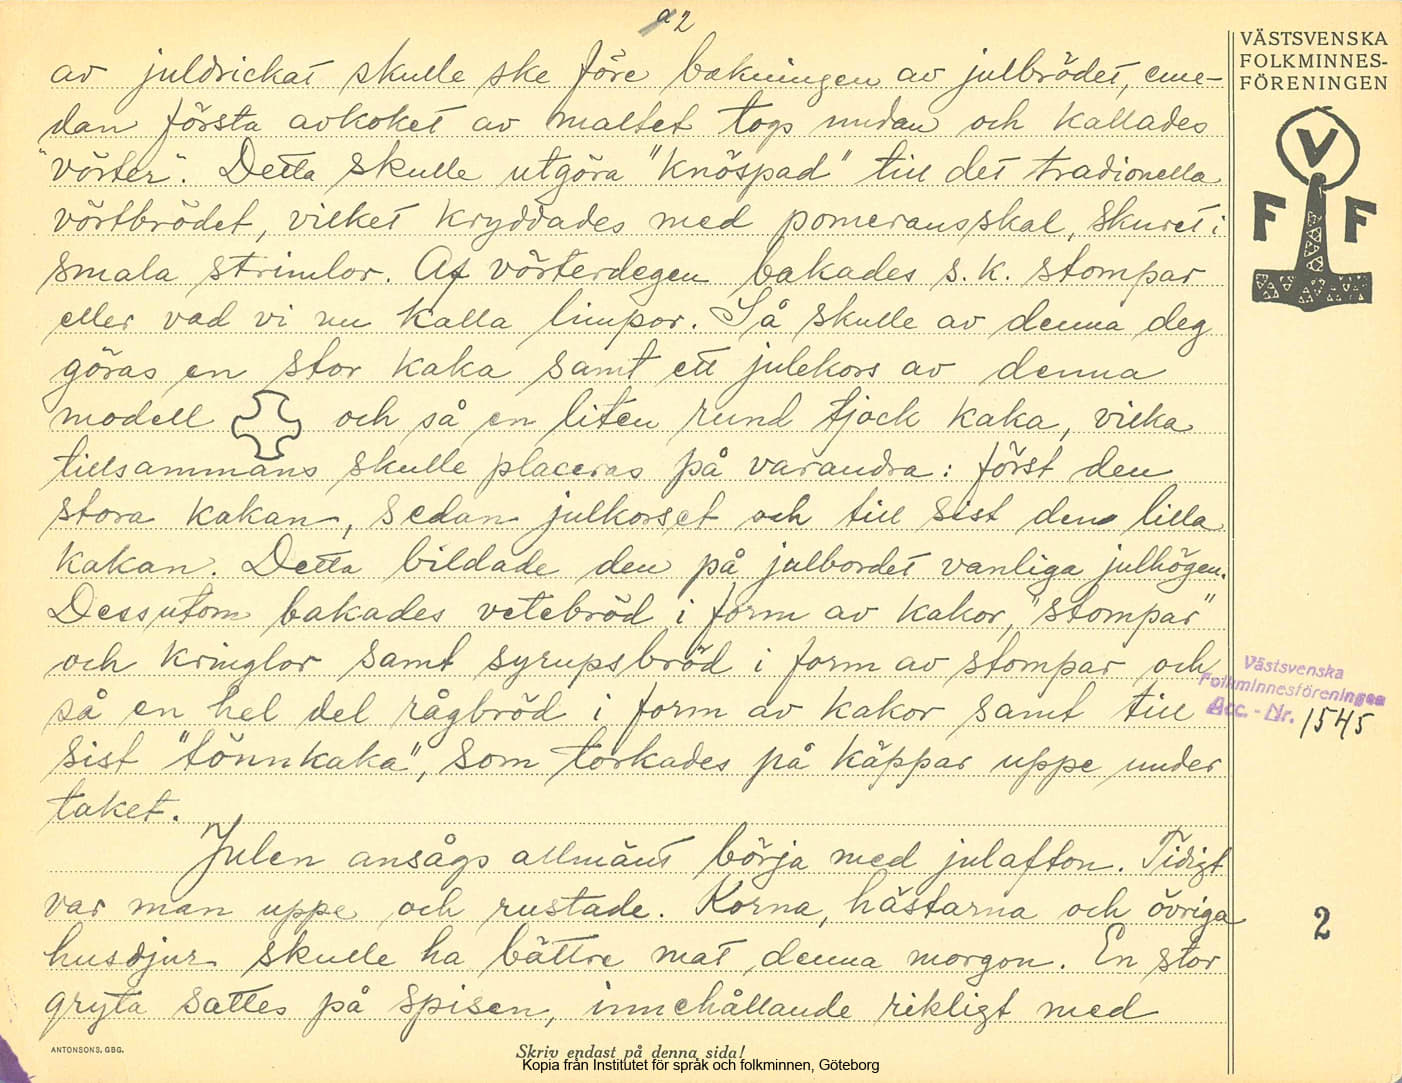 a2
av juldrickat skulle ske före bakningen av julbrödet, eme-
dan första avkoket av maltet togs undan och kallades
"vörter". Detta skulle utgöra "knöspad" till det tradionella
vörtbrödet, vilket kryddades med pomeransskal, skuret i
smala strimlor. Af vörterdegen bakades s.k. stompar
eller vad vi nu kalla limpor. Så skulle av denna deg
göras en stor kaka samt ett julekors av denna
modell och så en liten rund tjock kaka, vilka
tillsammans skulle placeras på varandra: först den
stora kakan, sedan julkorset och till sist den lilla
kakan. Detta bildade den på julbordet vanliga julhögen.
Dessutom bakades vetebröd i form av kakor, "stompar"
och kringlor samt syrupsbröd i form av stompar och
så en hel del rågbröd i form av kakor samt till
sist "tönnkaka", som torkades på käppar uppe under
taket.
Julen ansågs allmänt börja med julafton. Tidigt
var man uppe och rustade. Korna, hästarna och övriga
husdjur skulle ha bättre mat denna morgon. En stor
gryta sattes på spisen, innehållande rikligt med
VÄSTSVENSKA
FOLKMINNES-
FÖRENINGEN
V
F F
Västsvenska
Folkminnesföreningen
Acc. - Nr. 1545
2
ANTONSONS, GBG.
Skriv endast på denna sida!
Kopia från Institutet för språk och folkminnen, Göteborg